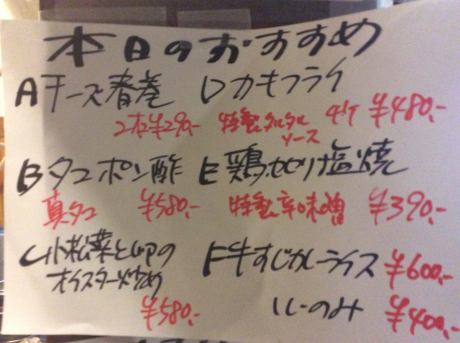 本日のおすすめ
Aチーズ春巻
2本¥290,-
Bタコポン酢
真タコ ¥580,-
C小松菜と卵の
オイスター炒め
¥580,-
Dカキフライ
特製タルタル
ソース
4ケ ¥480,-
E鶏せせり塩焼
特製辛味噌 ¥390,-
F牛すじカレーライス ¥600,-
〃のみ ¥400,-